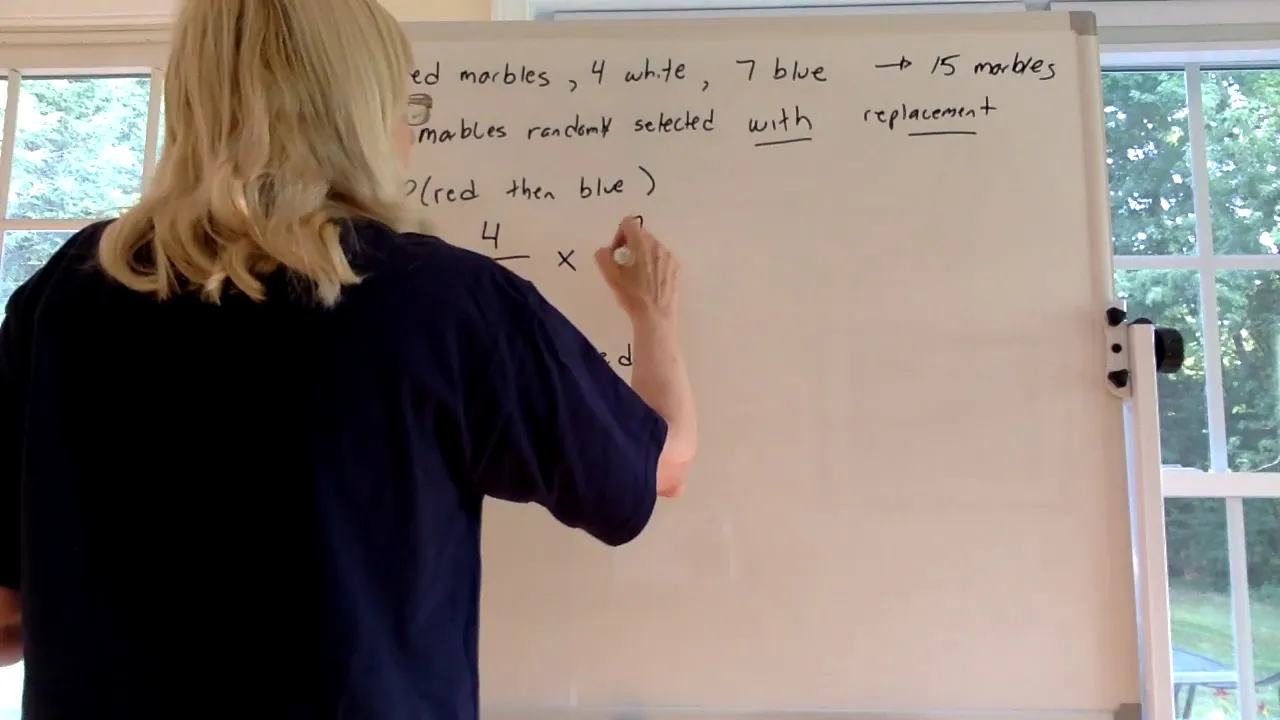 ed marbles, 4 white, 7 blue → 15 marbles
marbles randomly selected with replacement
P(red then blue)
4 ×
ed